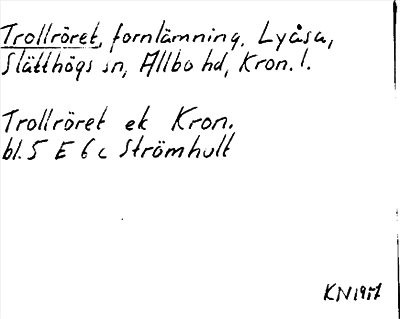 Trollröret, fornlämning. Lyåsa,
Slätthögs sn, Allbo hd, Kron. l.
Trollröret ek Kron.
bl. 5 E 6 c Strömhult